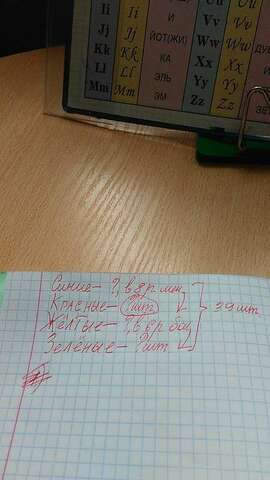 Ii Ii И Uu Uu
Jj Jj ЙОТ(ЖИ) Vv Vv
Kk Kk КА Ww Ww
Ll Ll ЭЛЬ Xx Xx
Mm Mm ЭМ Yy Yy
Zz Zz
Синие - ?, в 8 р
Красные - ?шт
Жёлтые - ?, в р бол
Зелёные - ?шт
39 шт